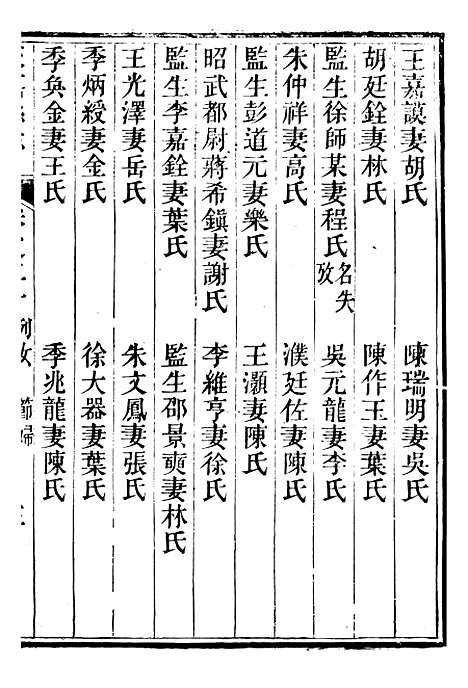 王嘉謨妻胡氏　陳瑞明妻吳氏
胡廷銓妻林氏　陳作玉妻葉氏
監生徐師某妻程氏名失攷　吳元龍妻李氏
朱仲祥妻高氏　濮廷佐妻陳氏
監生彭道元妻樂氏　王灝妻陳氏
昭武都尉蔣希鎮妻謝氏　李維亨妻徐氏
監生李嘉銓妻葉氏　監生邵景奭妻林氏
王光澤妻岳氏　朱文鳳妻張氏
季炳綬妻金氏　徐大器妻葉氏
季奐金妻王氏　季兆龍妻陳氏
列女　節婦